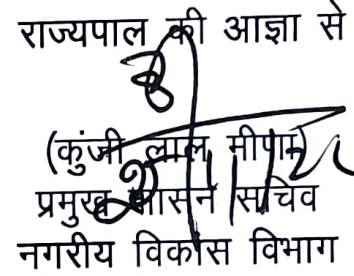 राज्यपाल की आज्ञा से
(कुंजी लाल मीणा)
प्रमुख शासन सचिव
नगरीय विकास विभाग